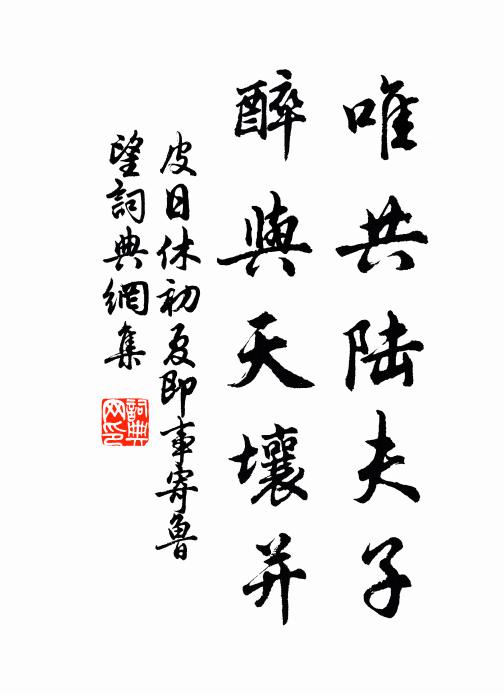 唯共陆夫子
醉與天壤并
皮日休初夏即事寄魯
望詞典網集
詞典
网印